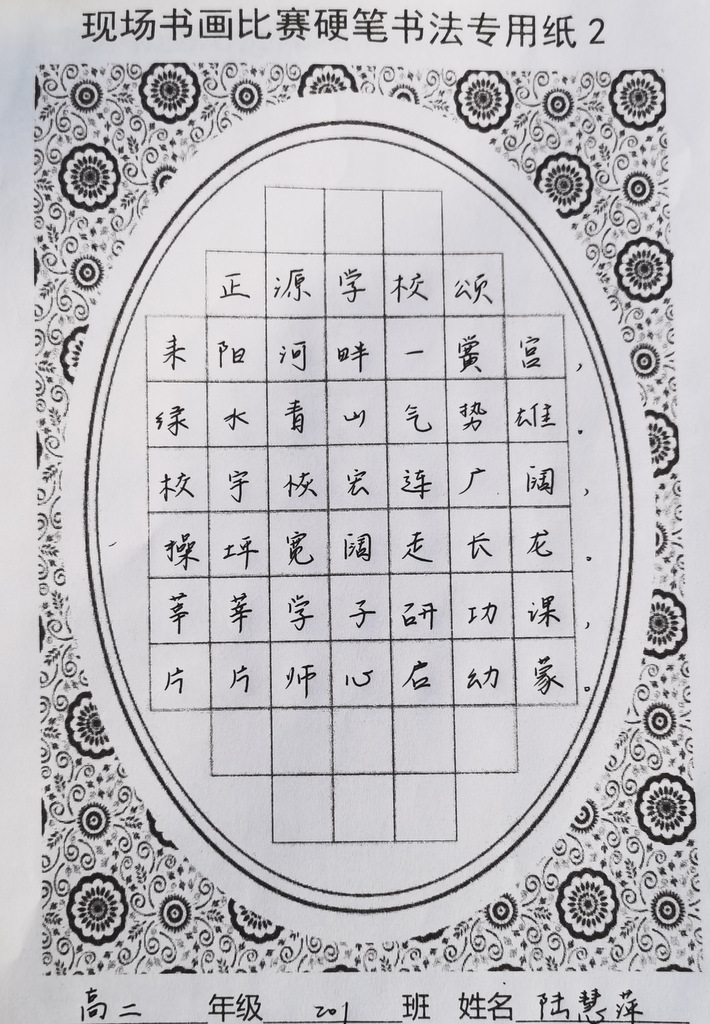 现场书画比赛硬笔书法专用纸2
正源学校颂
耒阳河畔一黉宫，
绿水青山气势雄。
校宇恢宏连广阔，
操坪宽阔走长龙。
莘莘学子研功课，
片片师心启幼蒙。
高二年级201班 姓名陆慧萍